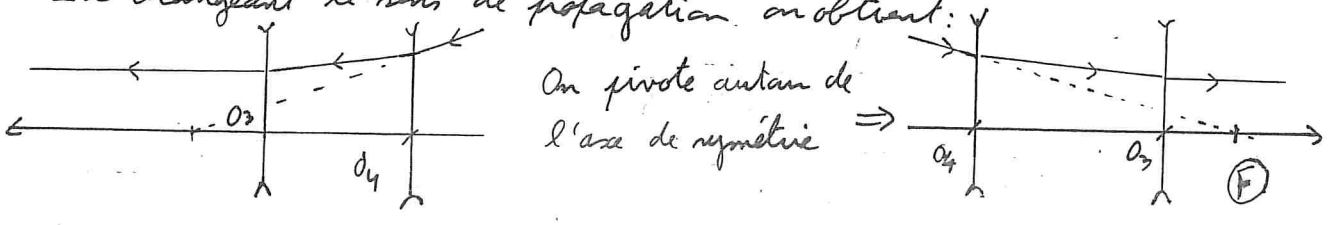 En changeant le sens de propagation on obtient :
On pivote autour de
l'axe de symétrie ⇒
O3
O4
O4
O3
F